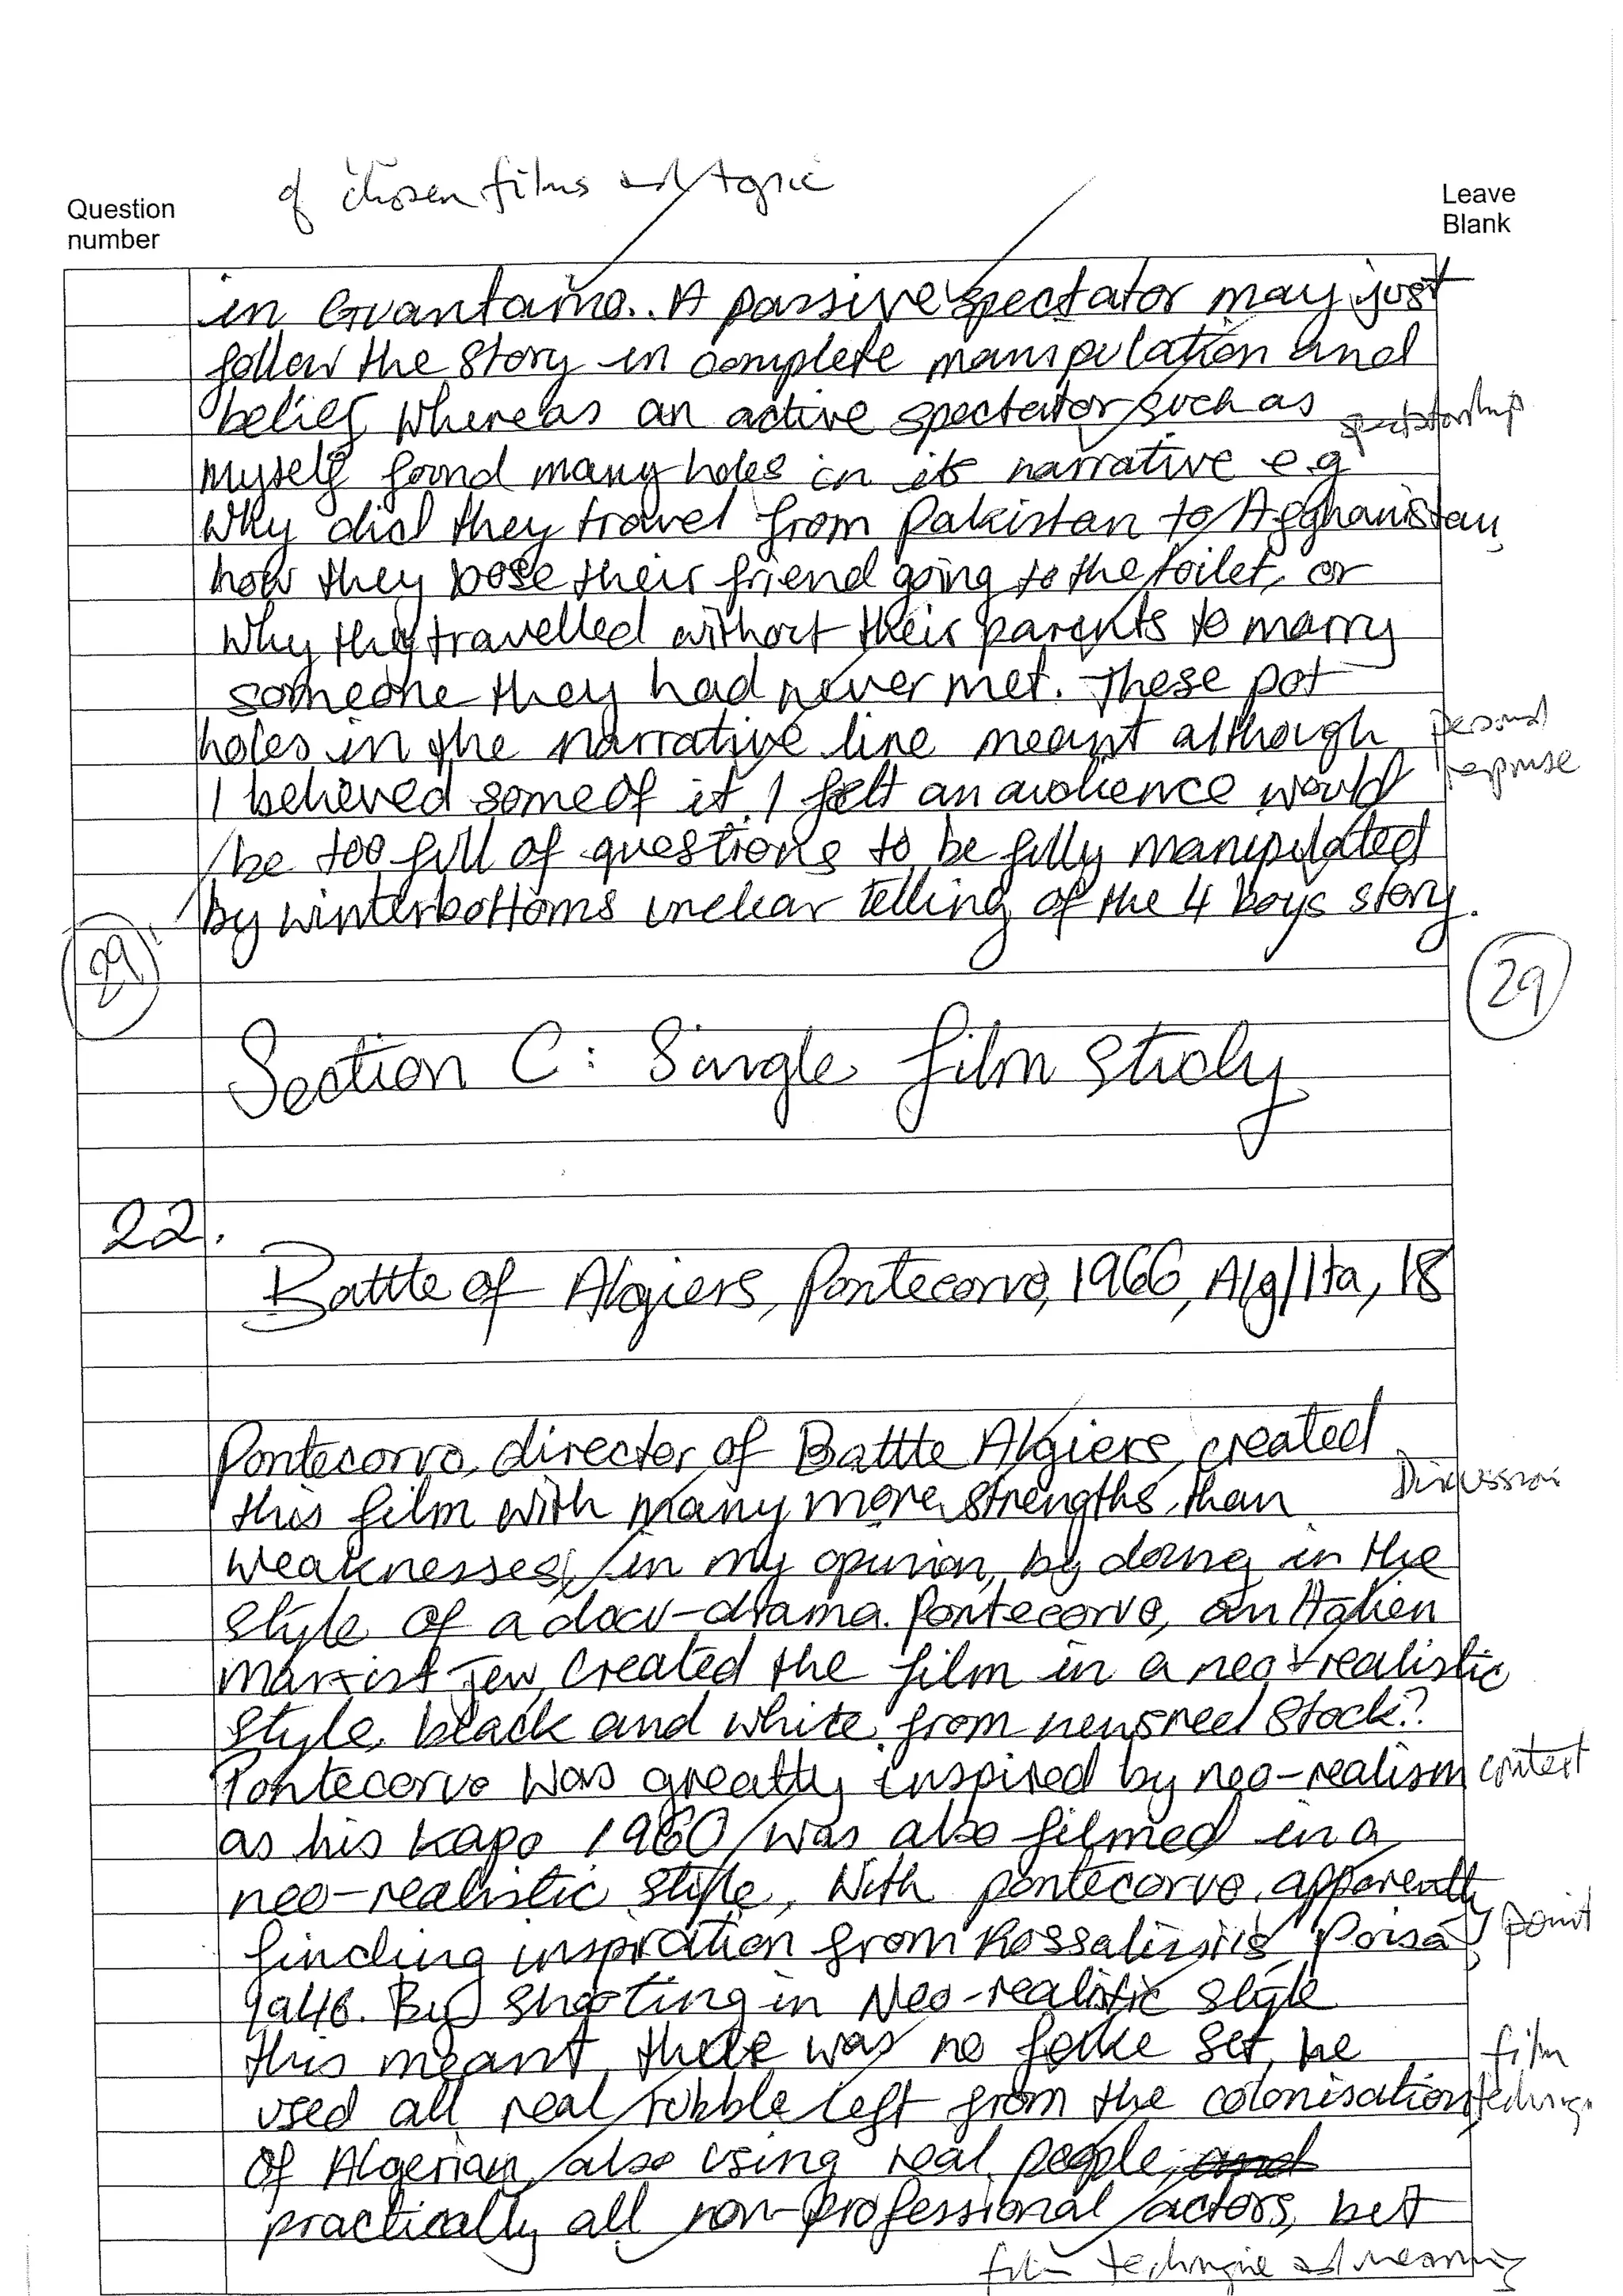 of chosen films and topic
Question
number
Leave
Blank
in Guantamo.. A passive spectator may just
follow the story in complete manipulation and
belief, whereas an active spectator such as
spectatorship
myself found many holes in its narrative e.g
why did they travel from Pakistan to Afghanistan,
how they lose their friend going to the toilet, or
why they travelled without their parents to marry
someone they had never met. These pot
holes in the narrative line meant although
personal
response
I believed some of it, I felt an audience would
be too full of questions to be fully manipulated
by winterbottoms unclear telling of the 4 boys story.
29
29
Section C: Single film study
22.
Battle of Algiers, Pontecorvo, 1966, Alg/Ita, 18
Pontecorvo, director of Battle Algiers, created
Discussion
this film with many more strengths than
weaknesses, in my opinion, by doing in the
style of a docu-drama. Pontecorvo, an
marxist Jew, created the film in a neo-realistic
style, black and white, from newsreel stock?
Pontecorvo was greatly inspired by neo-realism
context
as his Kapo 1960 was also filmed in a
neo-realistic style, with pontecorvo, apparently
finding inspiration from
point
1946. By shooting in Neo-realistic style
this meant, there was no fake set, he
film
technique
used all real rubble left from the colonisation
of Algerian, also using real people, and
practically all non-professional actors, bet
film technique and meaning